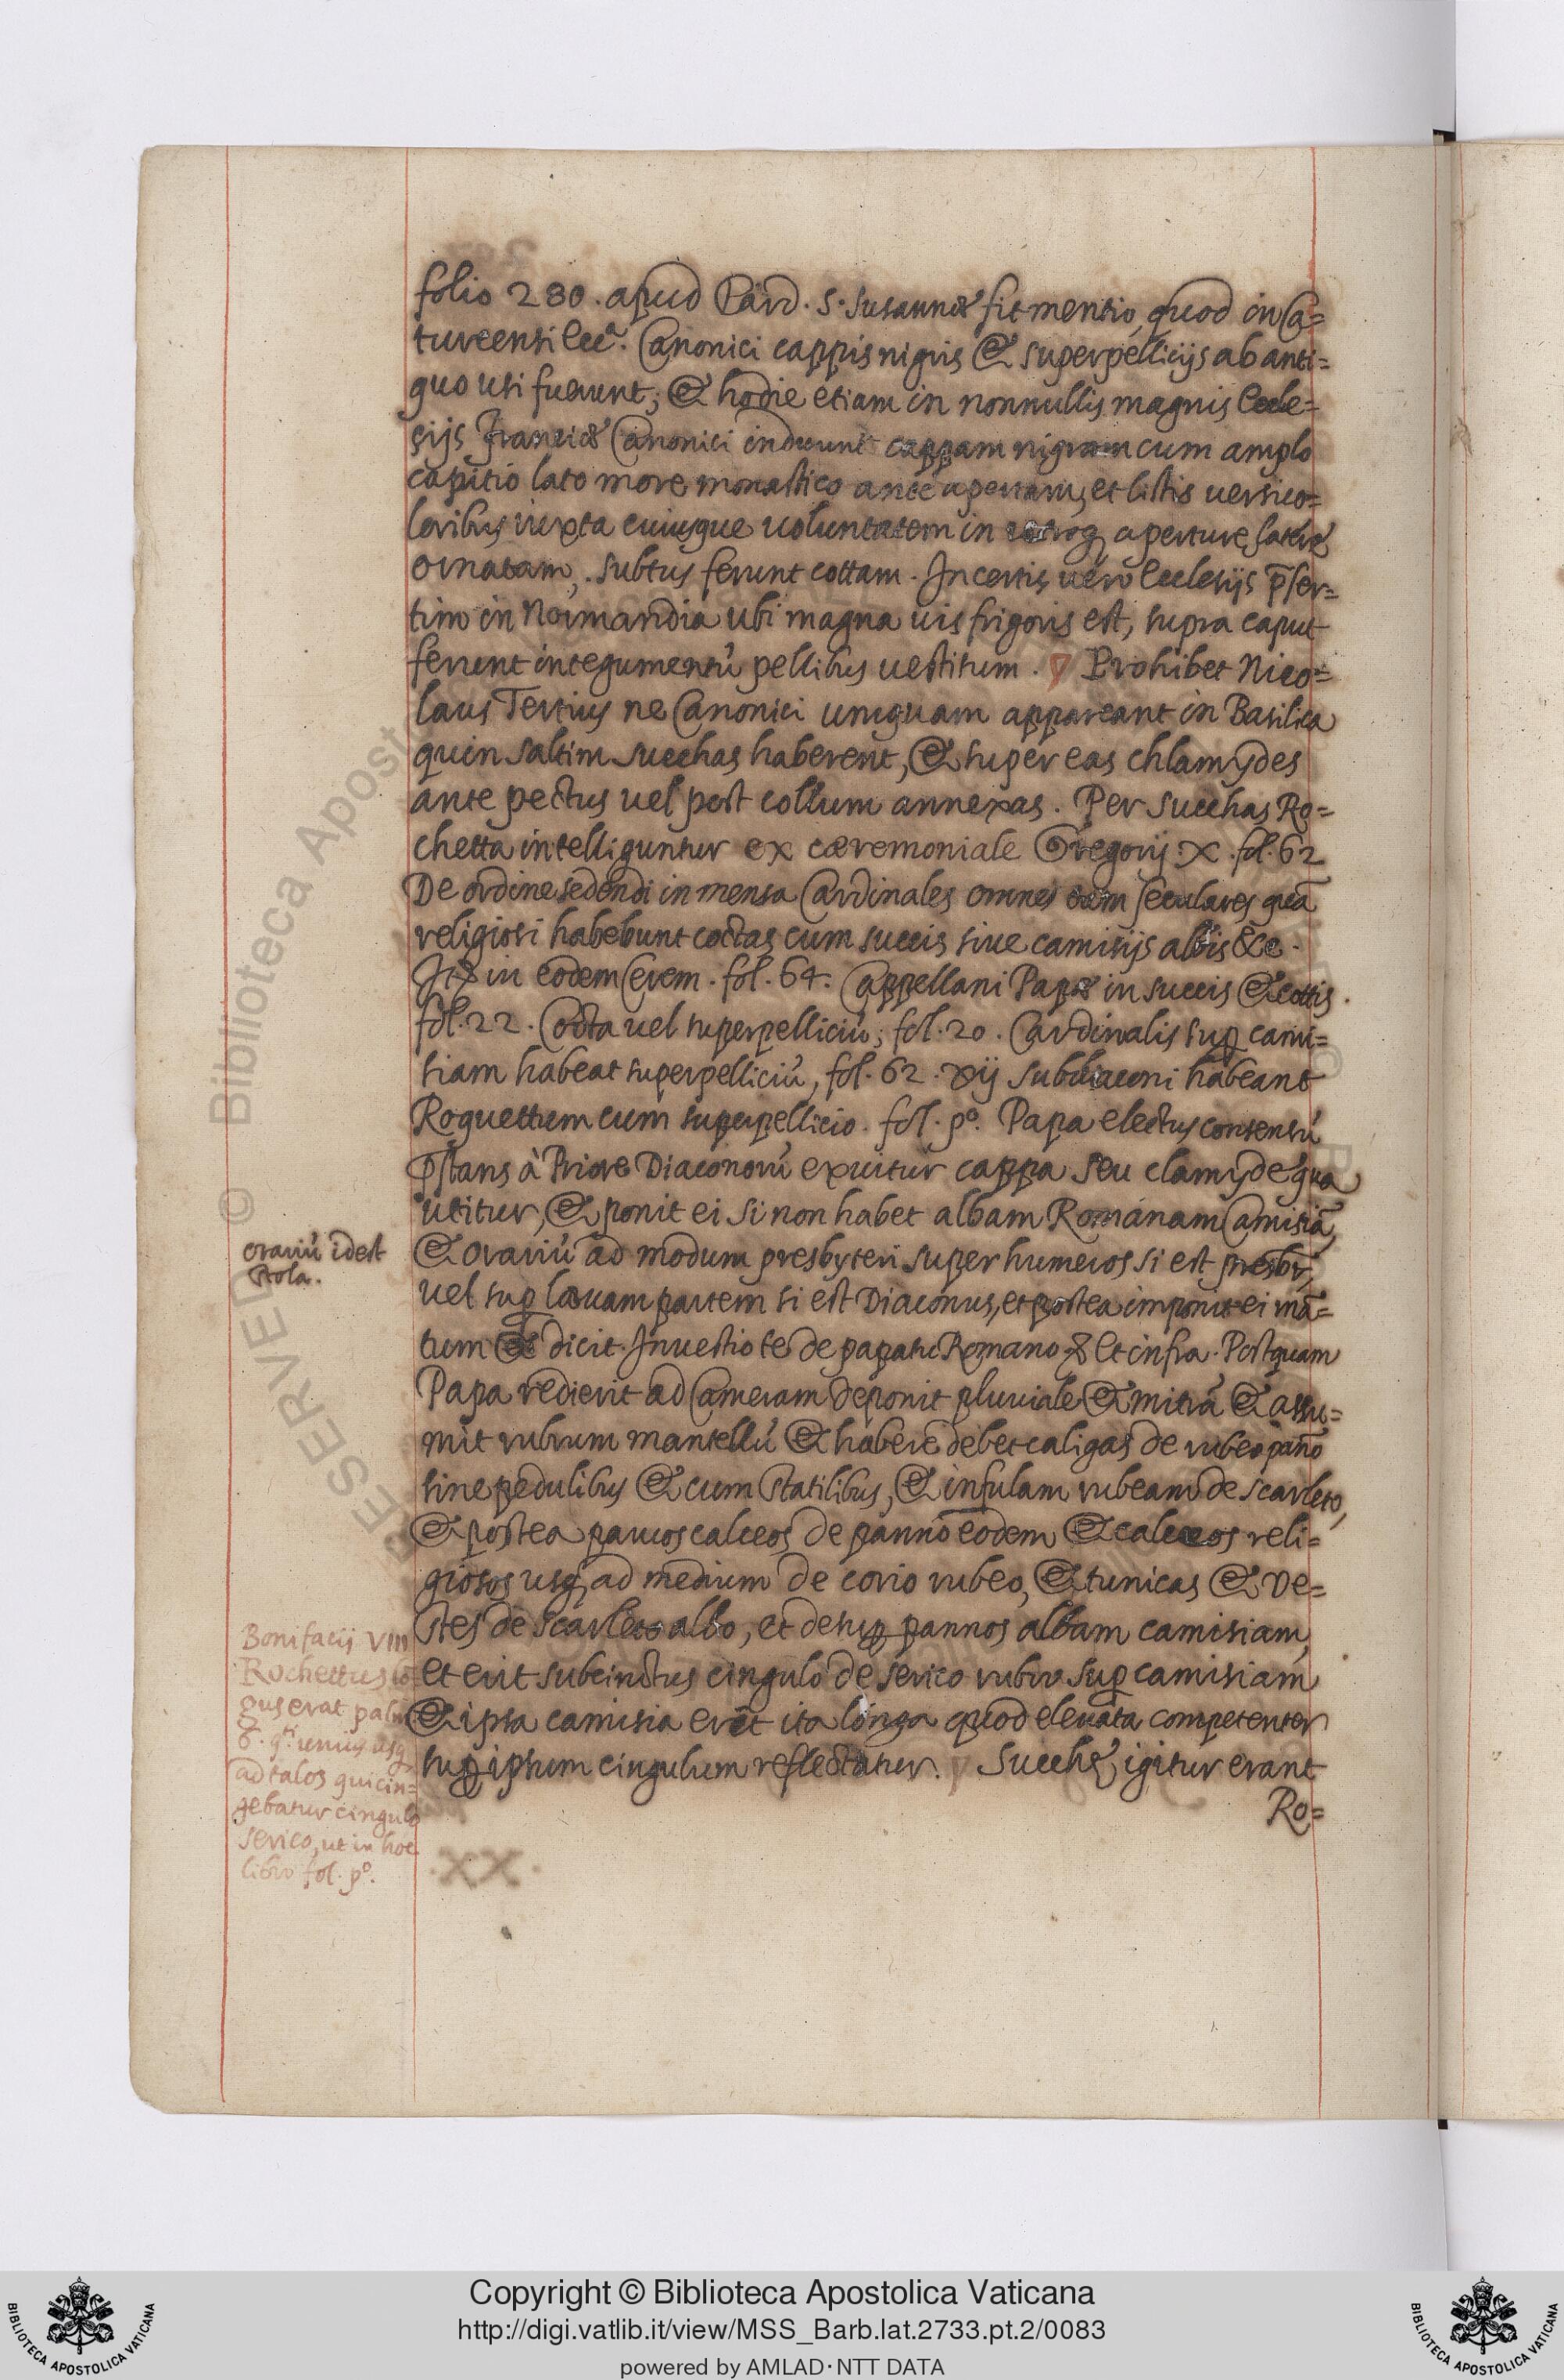 folio 280. apud Card. S. Susannæ fit mentio, quod in Ca=
turcensi Eccª. Canonici cappis nigris & superpellicijs ab anti=
quo usi fuerunt; & hodie etiam in nonnullis magnis Eccle=
sijs Franciæ Canonici induunt cappam nigram cum amplo
capitio lato more monastico ante apertam, et listis uersico=
loribus iuxta cuiusque uoluntatem in utroq; aperturę latere
ornatam, subtus ferunt cottam. In certis uero Ecclesijs p̄ser=
tim in Normandia ubi magna uis frigoris est, supra caput
ferunt integumentū pellibus uestitum. Prohibet Nico=
laus Tertius ne Canonici umquam appareant in Basilica
quin saltim succhas haberent, & super eas chlamydes
ante pectus uel post collum annexas. Per succhas Ro=
chetta intelliguntur ex cæremoniale Gregorij X. fol. 62
De ordine sedendi in mensa Cardinales omnes tam seculares quā
religiosi habebunt coctas cum succis siue camisijs albis &c.
in eodem Cerem. fol. 64. Cappellani Papæ in succis & cottis.
fol. 22. Cocta uel superpelliciū; fol. 20. Cardinalis sup cami=
siam habeat superpelliciū, fol. 62. xij subdiaconi habeant
Roquettum cum superpellicio. fol. pº. Papa electus consensū
p̄stans à Priore Diaconorū exuitur cappa seu clamyde qua
utitur, & ponit ei si non habet albam Romanam Camisiā,
& orariū ad modum presbyteri super humeros si est presbr̄,
uel sup læuam partem si est Diaconus, et postea imponit ei mā=
tum & dicit. Inuestio te de papatu Romano & Et infra. Postquam
Papa redierit ad Cameram deponit pluuiale & mitrā & assu=
mit rubrum mantellū & habere debet caligas de rubeo pāno
sine pedulibus & cum statilibus, & infulam rubeam de scarleto,
& postea paruos calceos de panno eodem & calceos reli=
giosos usq; ad medium de corio rubeo, & tunicas & ve=
stes de scarleto albo, et desup pannos albam camisiam,
et erit subcinctus cingulo de serico rubro sup camisiam
& ipsa camisia erit ita longa quod eleuata competenter
sup ipsum cingulum reflectatur. Succhę igitur erant
Ro=
orariū idest
stola.
Bonifacij VIII
Rochettus lō=
gus erat palm
8. unius usq;
ad talos qui cin=
gebatur cingulo
serico, ut in hoc
libro fol. pº.
Copyright © Biblioteca Apostolica Vaticana
http://digi.vatlib.it/view/MSS_Barb.lat.2733.pt.2/0083
powered by AMLAD·NTT DATA
BIBLIOTECA APOSTOLICA VATICANA
BIBLIOTECA APOSTOLICA VATICANA